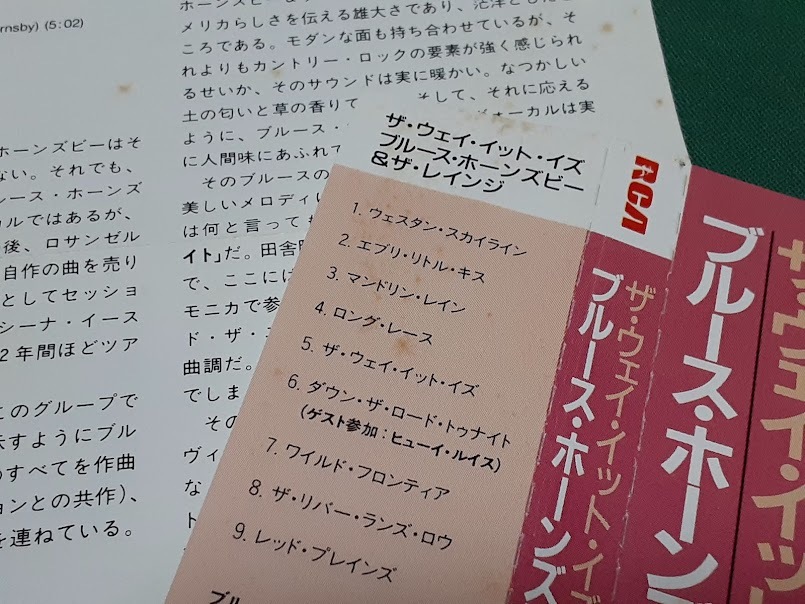 rnsby) (5:02)
ホーンズビーはそ
ない。それでも、
レース・ホーンズ
カルではあるが、
後、ロサンゼル
自作の曲を売り
としてセッショ
シーナ・イース
2年間ほどツア
このグループで
示すようにブル
のすべてを作曲
ョンとの共作)、
を連ねている。
メリカらしさを伝える雄大さであり、茫洋としたと
ころである。モダンな面も持ち合わせているが、そ
れよりもカントリー・ロックの要素が強く感じられ
るせいか、そのサウンドは実に暖かい。なつかしい
土の匂いと草の香りて そして、それに応える
ように、ブルース・ ォーカルは実
に人間味にあふれて
そのブルースの
美しいメロディ
は何と言って
イト」だ。田舎
で、ここには
モニカで参
ド・ザ・
曲調だ。
でしま
その
ヴィ
な
ザ・ウェイ・イット・イズ
ブルース・ホーンズビー
&ザ・レインジ
1. ウェスタン・スカイライン
2. エブリ・リトル・キス
3. マンドリン・レイン
4. ロング・レース
5. ザ・ウェイ・イット・イズ
6. ダウン・ザ・ロード・トゥナイト
(ゲスト参加:ヒューイ・ルイス)
7. ワイルド・フロンティア
8. ザ・リバー・ランズ・ロウ
9. レッド・プレインズ
ブル
RCA
ザ・ウェイ・イット・イズ
ブルース・ホーンズ
ザ・ウェイ・イッ
ブルース・ホーン